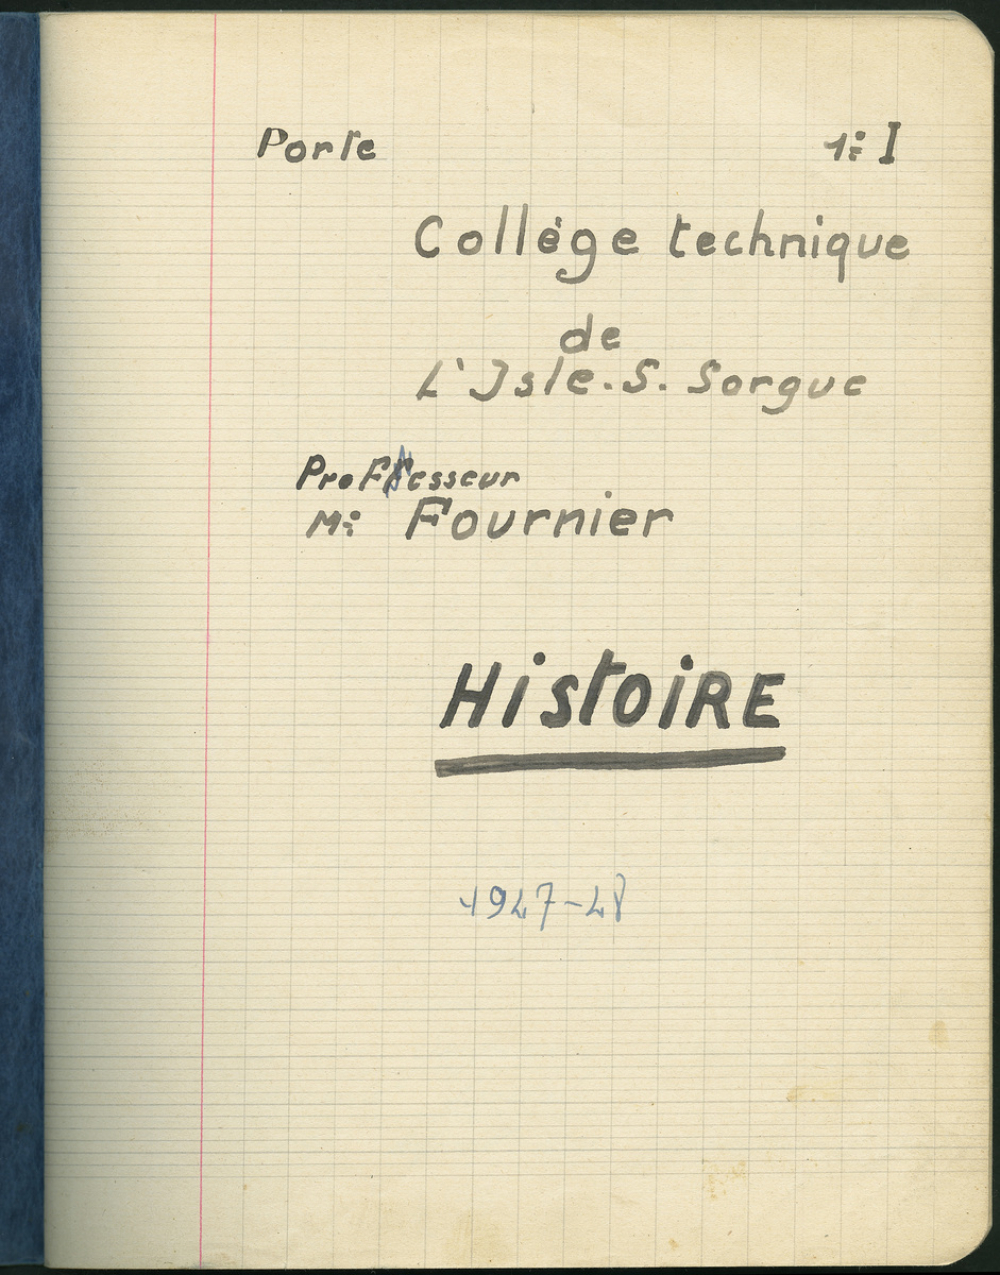 Porte 1è I
Collège technique
de
L'Isle.S. Sorgue
Professeur
Mr Fournier
HistoiRE
1947-48